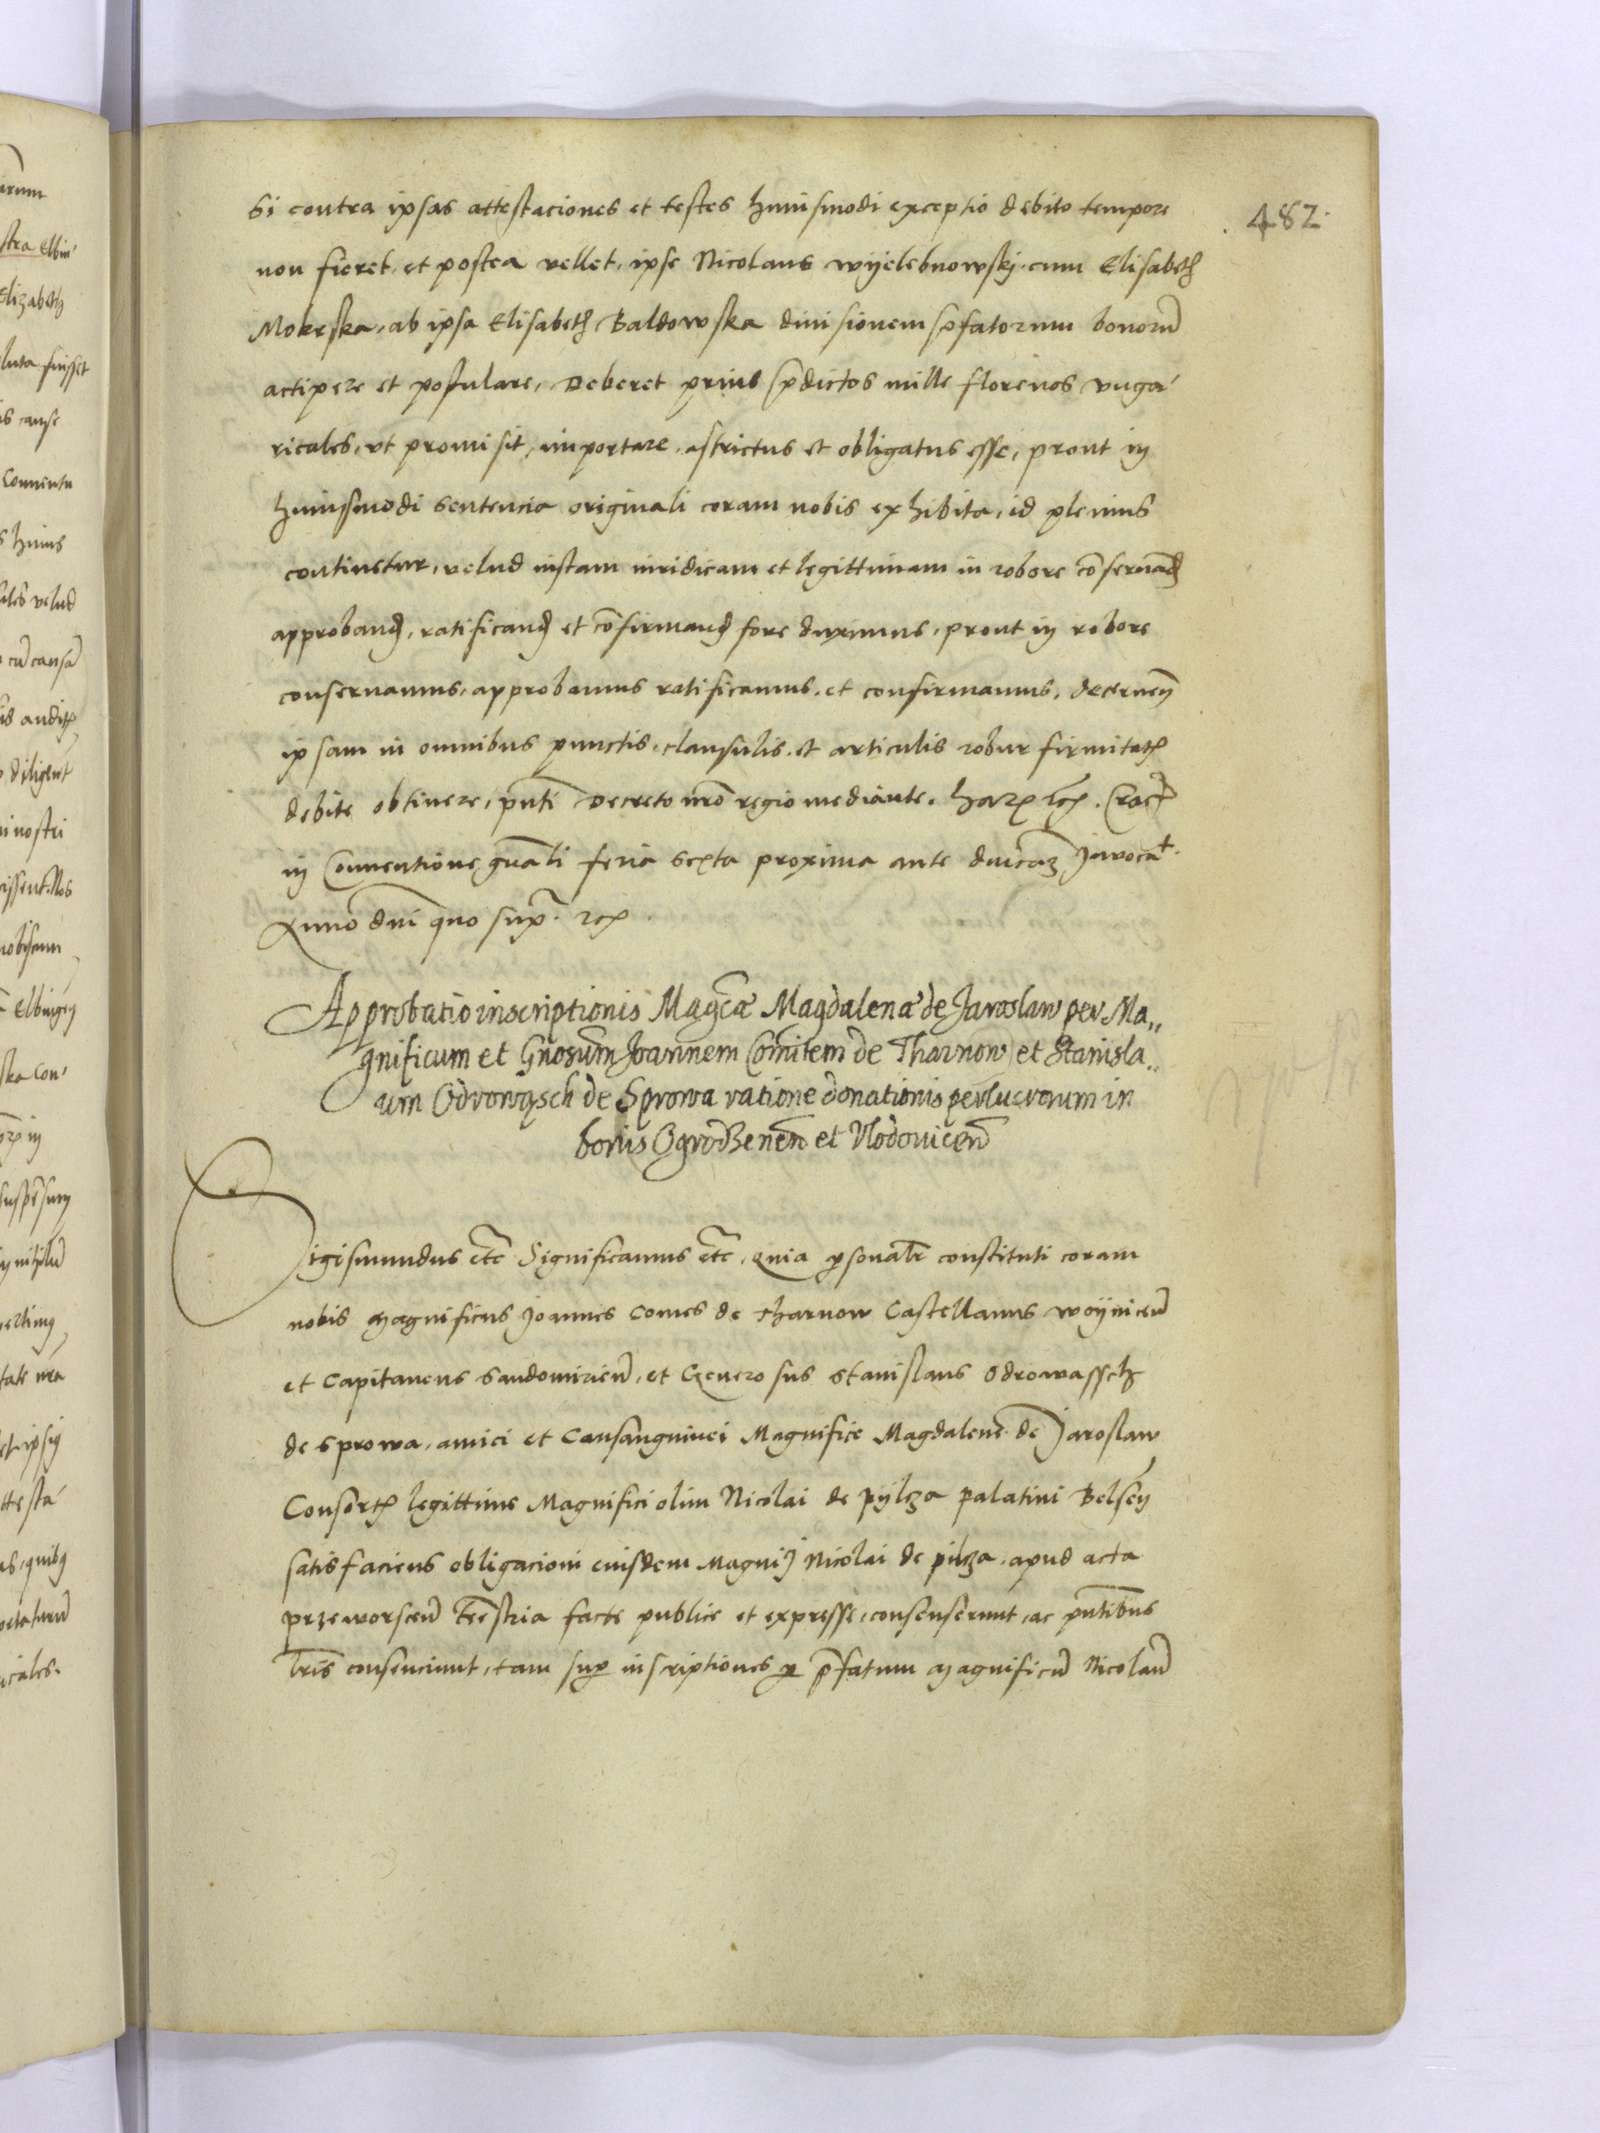 482
si contra ipsas attestaciones et testes huiusmodi exceptio debito tempore
non fieret, et postea vellet, ipse Nicolaus wyelebnowskj cum Elisabeth
Mokrska, ab ipsa Elisabeth Baldowska diuisionem p̄fatorum bonorū
accipere et postulare, Deberet prius p̄dictos mille florenos vnga-
ricales, vt promisit, importare, astrictus et obligatus esse, prout in
huiusmodi sentencia originali coram nobis exhibita, id plenius
continetur, velud iustam iuridicam et legittimam in robore cōseruand
approband, ratificand et cōfirmand fore duximus, prout in robore
conseruamus, approbamus ratificamus, et confirmamus, decernen
ipsam in omnibus punctis, clausulis, et articulis robur firmitatis
debite obtinere, pn̄ti Decreto nr̄o regio mediante. Harz
in Conuentione gn̄ali feria sexta proxima ante dn̄icam Inuocat
Anno dn̄i quo sup
Approbatio inscriptionis Mag̅cæ Magdalenæ de Jaroslaw per Ma,,
gnificum et Gn̄osum Joannem Comitem de Tharnow et Stanisla,,
um Odrowąsch de Sprowa ratione donationis perlucrorum in
bonis Ogrodzenen̄ et Vlodouicen̄
Sigismundus etc̄ Significamus etc̄, quia psonalr̄ constituti coram
nobis Magnificus Joannes Comes de tharnow Castellanus woynicen̄
et Capitaneus Sandomirien̄, et Generosus Stanislaus Odrowassch
de Sprowa, amici et Consanguinei Magnifice Magdalene de Jaroslaw
Consortis legittime Magnifici olim Nicolai de pylcza palatini Belsen
satisfaciens obligacioni eiusdem Magnifi Nicolai de pilcza, apud acta
przeworscen̄ tr̄estria facte publice et expresse, consenserunt, ac pn̄tibus
lr̄is consenciunt, tam sup inscriptiones p p̄fatum Magnificū Nicolaū